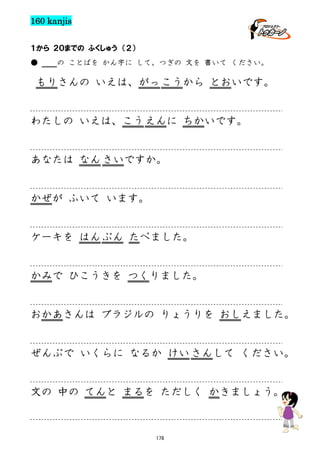 160 kanjis
プロジェクト
1から 20までの ふくしゅう (2)
● ＿＿の ことばを かん字に して、つぎの 文を 書いて ください。
もりさんの いえは、がっこうから とおいです。
わたしの いえは、こうえんに ちかいです。
あなたは なんさいですか。
かぜが ふいて います。
ケーキを はんぶん たべました。
かみで ひこうきを つくりました。
おかあさんは ブラジルの りょうりを おしえました。
ぜんぶで いくらに なるか けいさんして ください。
文の 中の てんと まるを ただしく かきましょう。
178